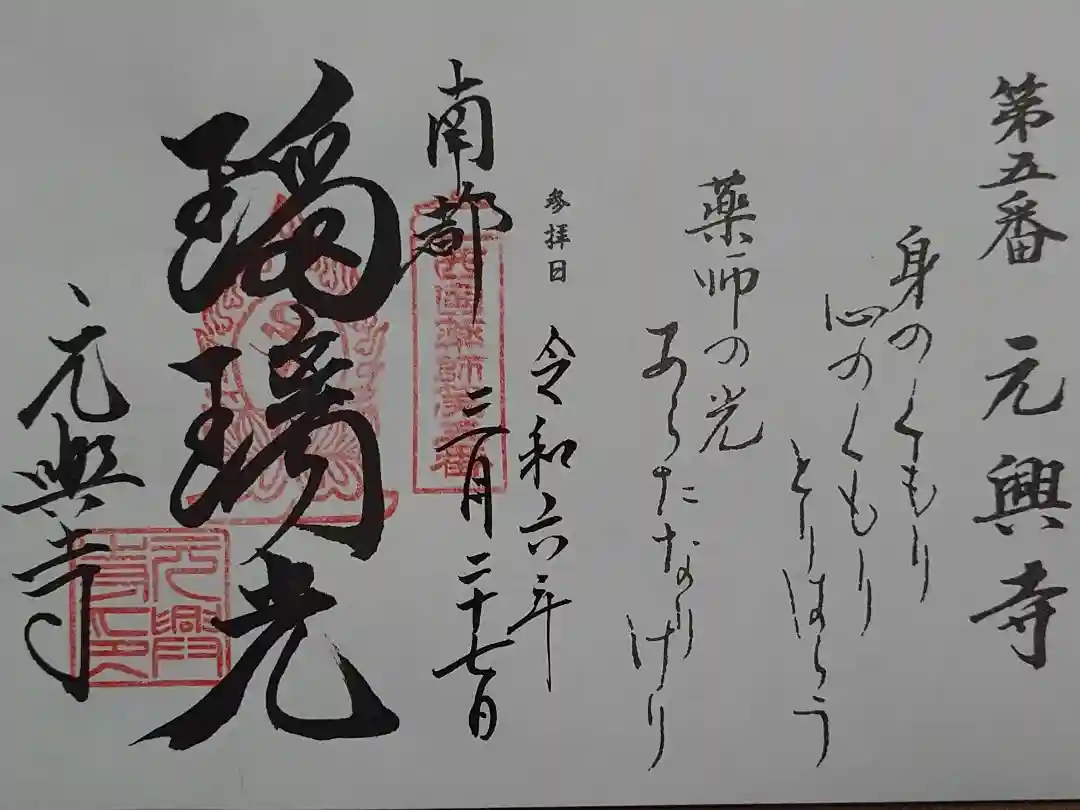 第五番 元興寺
身のくもり
心のくもり
とりはらう
薬師の光
あらたなり
けり
参拝日 令和六年
二月二十七日
南都
西国薬師第五番
瑠璃光
元興寺
元興寺印